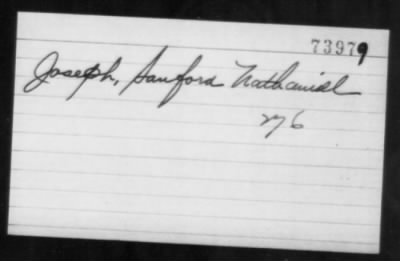 73979
Joseph, Sanford Nathaniel
276